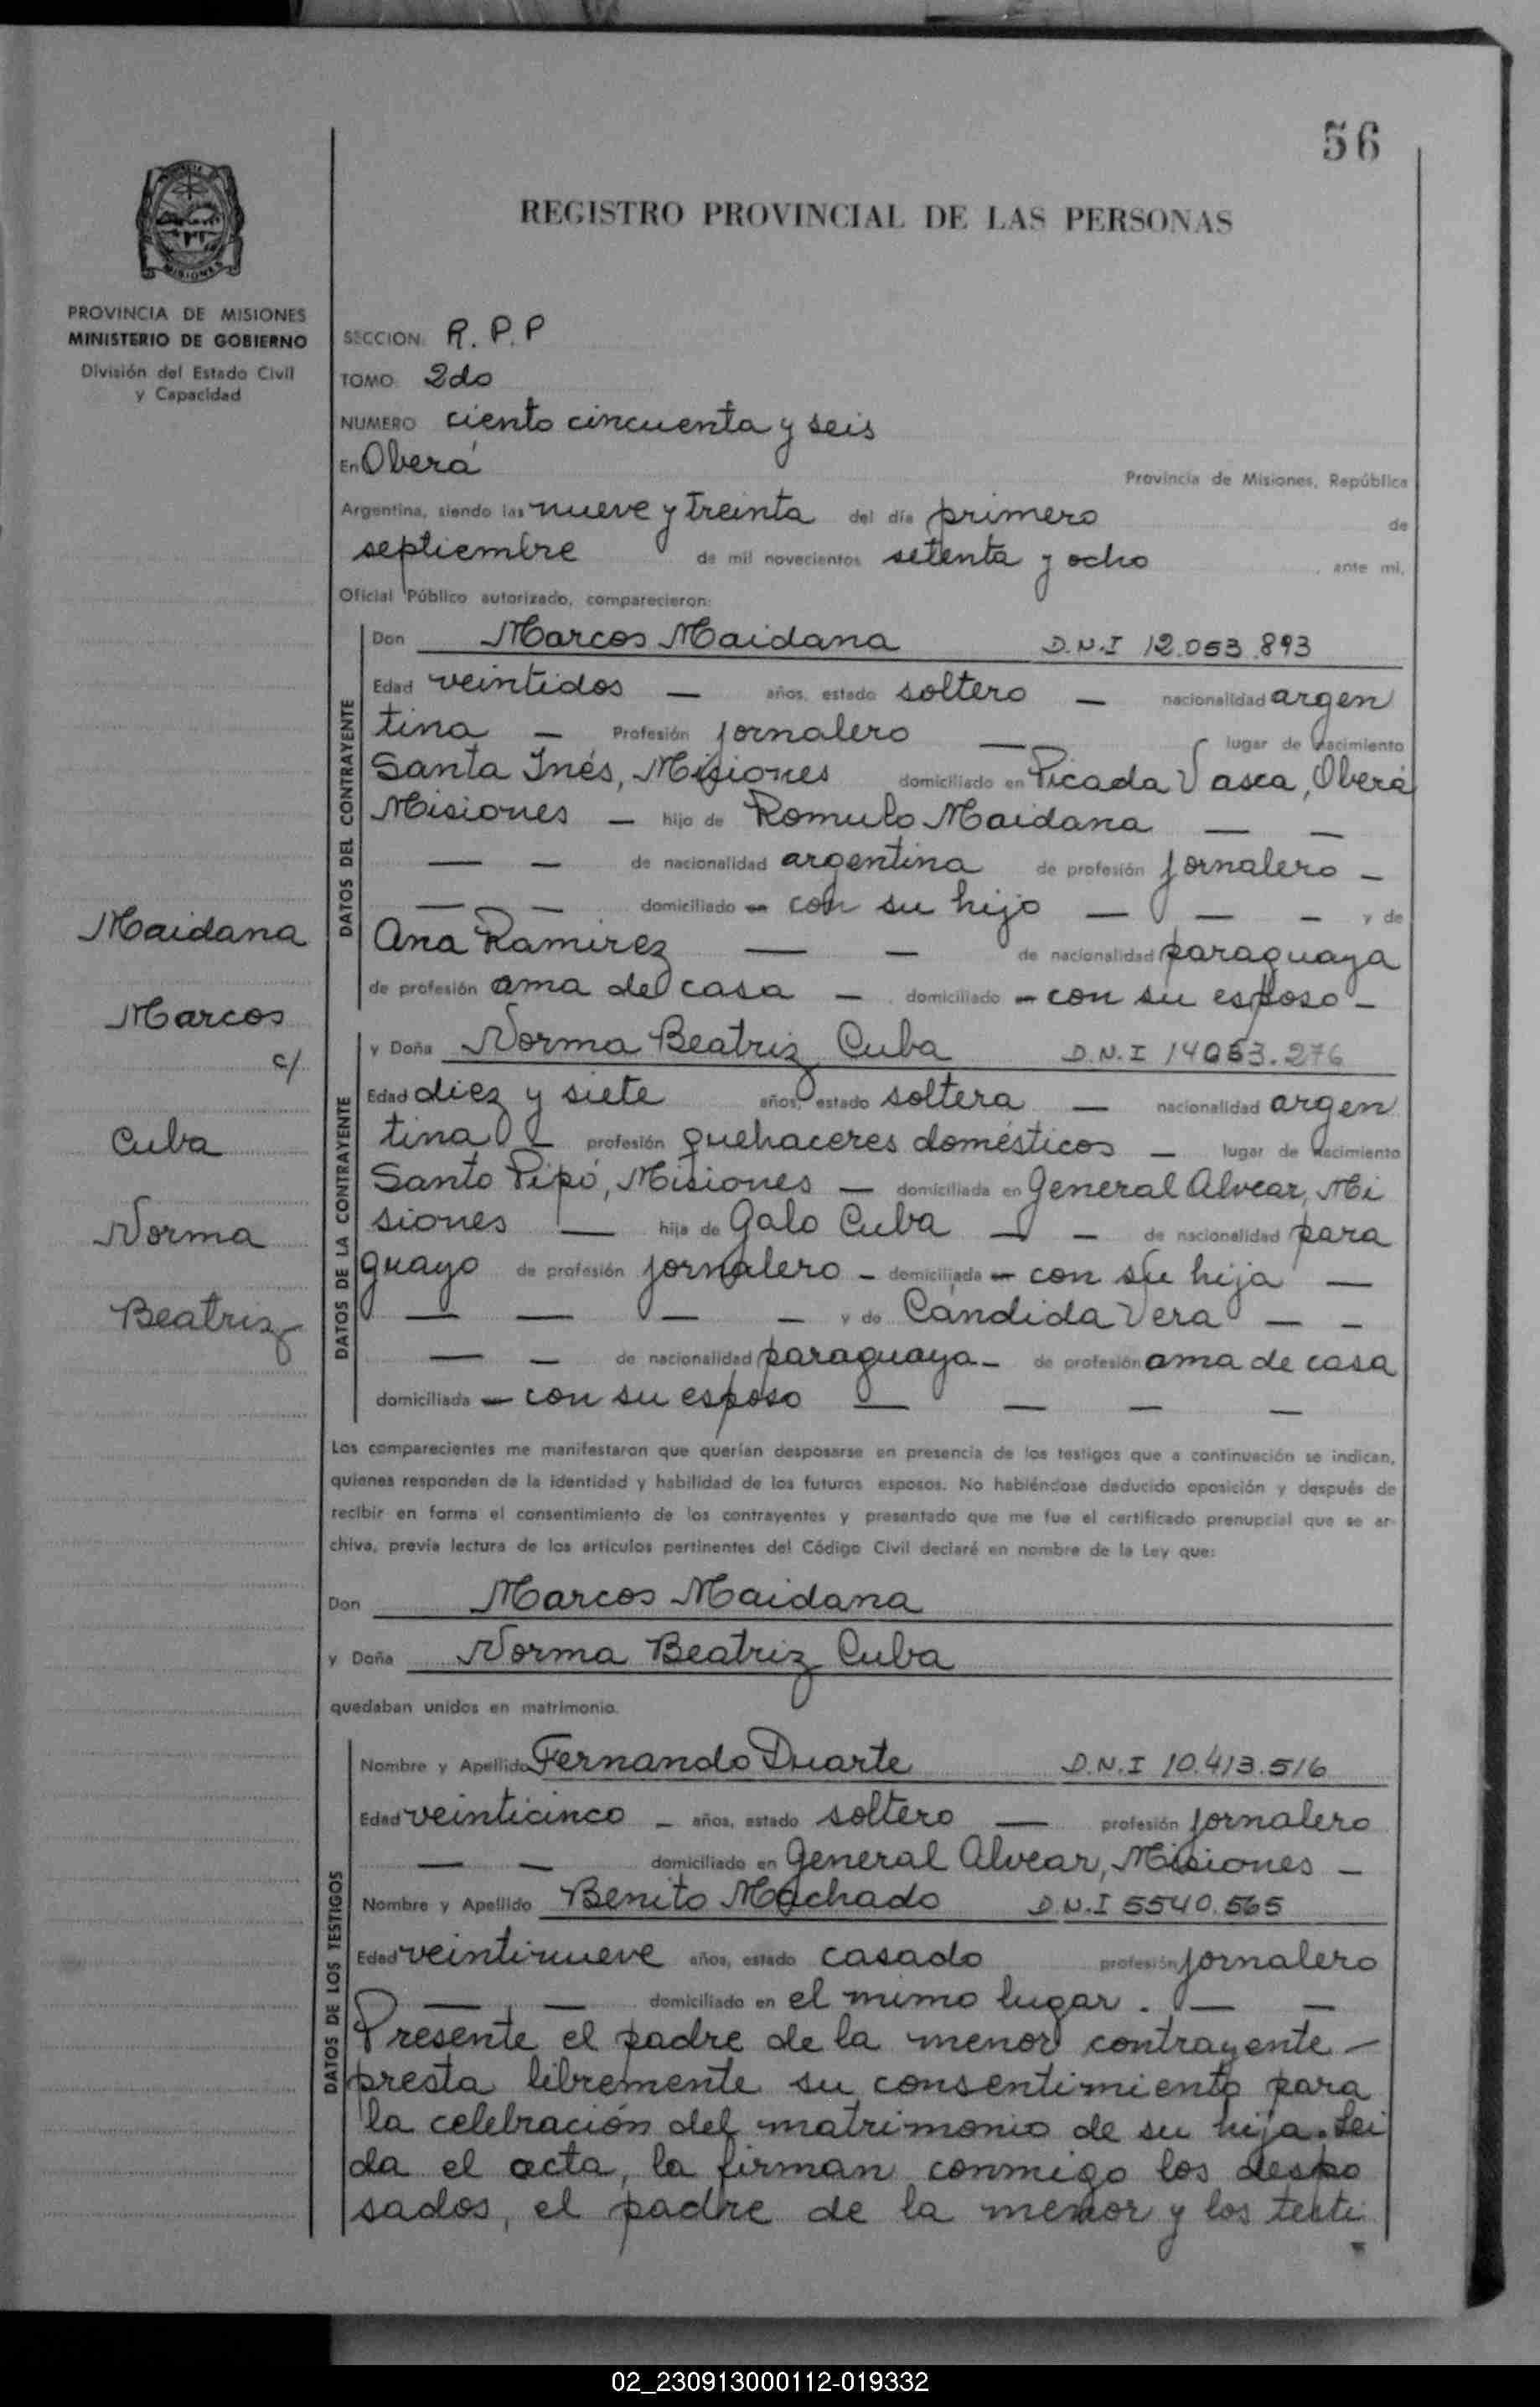 56
REGISTRO PROVINCIAL DE LAS PERSONAS
MISIONES
PROVINCIA DE MISIONES
MINISTERIO DE GOBIERNO
División del Estado Civil
y Capacidad
SECCION: R. P. P
TOMO: 2do
NUMERO ciento cincuenta y seis
En Oberá Provincia de Misiones, República
Argentina, siendo las nueve y treinta del día primero de
septiembre de mil novecientos setenta y ocho, ante mi,
Oficial Público autorizado, comparecieron:
DATOS DEL CONTRAYENTE
Don Marcos Maidana D.N.I 12.053.893
Edad veintidos — años, estado soltero — nacionalidad argen
tina — Profesión jornalero — lugar de nacimiento
Santa Inés, Misiones domiciliado en Picada Vasca, Oberá
Misiones — hijo de Romulo Maidana — —
— — de nacionalidad argentina de profesión jornalero —
— — domiciliado — con su hijo — — — y de
Ana Ramirez — — de nacionalidad paraguaya
de profesión ama de casa — domiciliado — con su esposo —
DATOS DE LA CONTRAYENTE
y Doña Norma Beatriz Cuba D.N.I 14053.276
Edad diez y siete años, estado soltera — nacionalidad argen
tina — profesión quehaceres domésticos — lugar de nacimiento
Santo Pipó, Misiones — domiciliada en General Alvear, Mi
siones — hija de Galo Cuba — — de nacionalidad para
guayo de profesión jornalero — domiciliada — con su hija —
— — — — y de Cándida Vera — —
— — de nacionalidad paraguaya — de profesión ama de casa
domiciliada — con su esposo — — — —
Maidana
Marcos
c/.
Cuba
Norma
Beatriz
Los comparecientes me manifestaron que querían desposarse en presencia de los testigos que a continuación se indican,
quienes responden de la identidad y habilidad de los futuros esposos. No habiéndose deducido oposición y después de
recibir en forma el consentimiento de los contrayentes y presentado que me fue el certificado prenupcial que se ar-
chiva, previa lectura de los artículos pertinentes del Código Civil declaré en nombre de la Ley que:
Don Marcos Maidana
y Doña Norma Beatriz Cuba
quedaban unidos en matrimonio.
DATOS DE LOS TESTIGOS
Nombre y Apellido Fernando Duarte D.N.I 10.413.516
Edad veinticinco — años, estado soltero — profesión jornalero
— — domiciliado en General Alvear, Misiones —
Nombre y Apellido Benito Machado D.N.I 5540.565
Edad veintinueve años, estado casado profesión jornalero
— — domiciliado en el mimo lugar. — —
Presente el padre de la menor contrayente —
presta libremente su consentimiento para
la celebración del matrimonio de su hija. Lei
da el acta, la firman conmigo los despo
sados, el padre de la menor y los testi
02_230913000112-019332